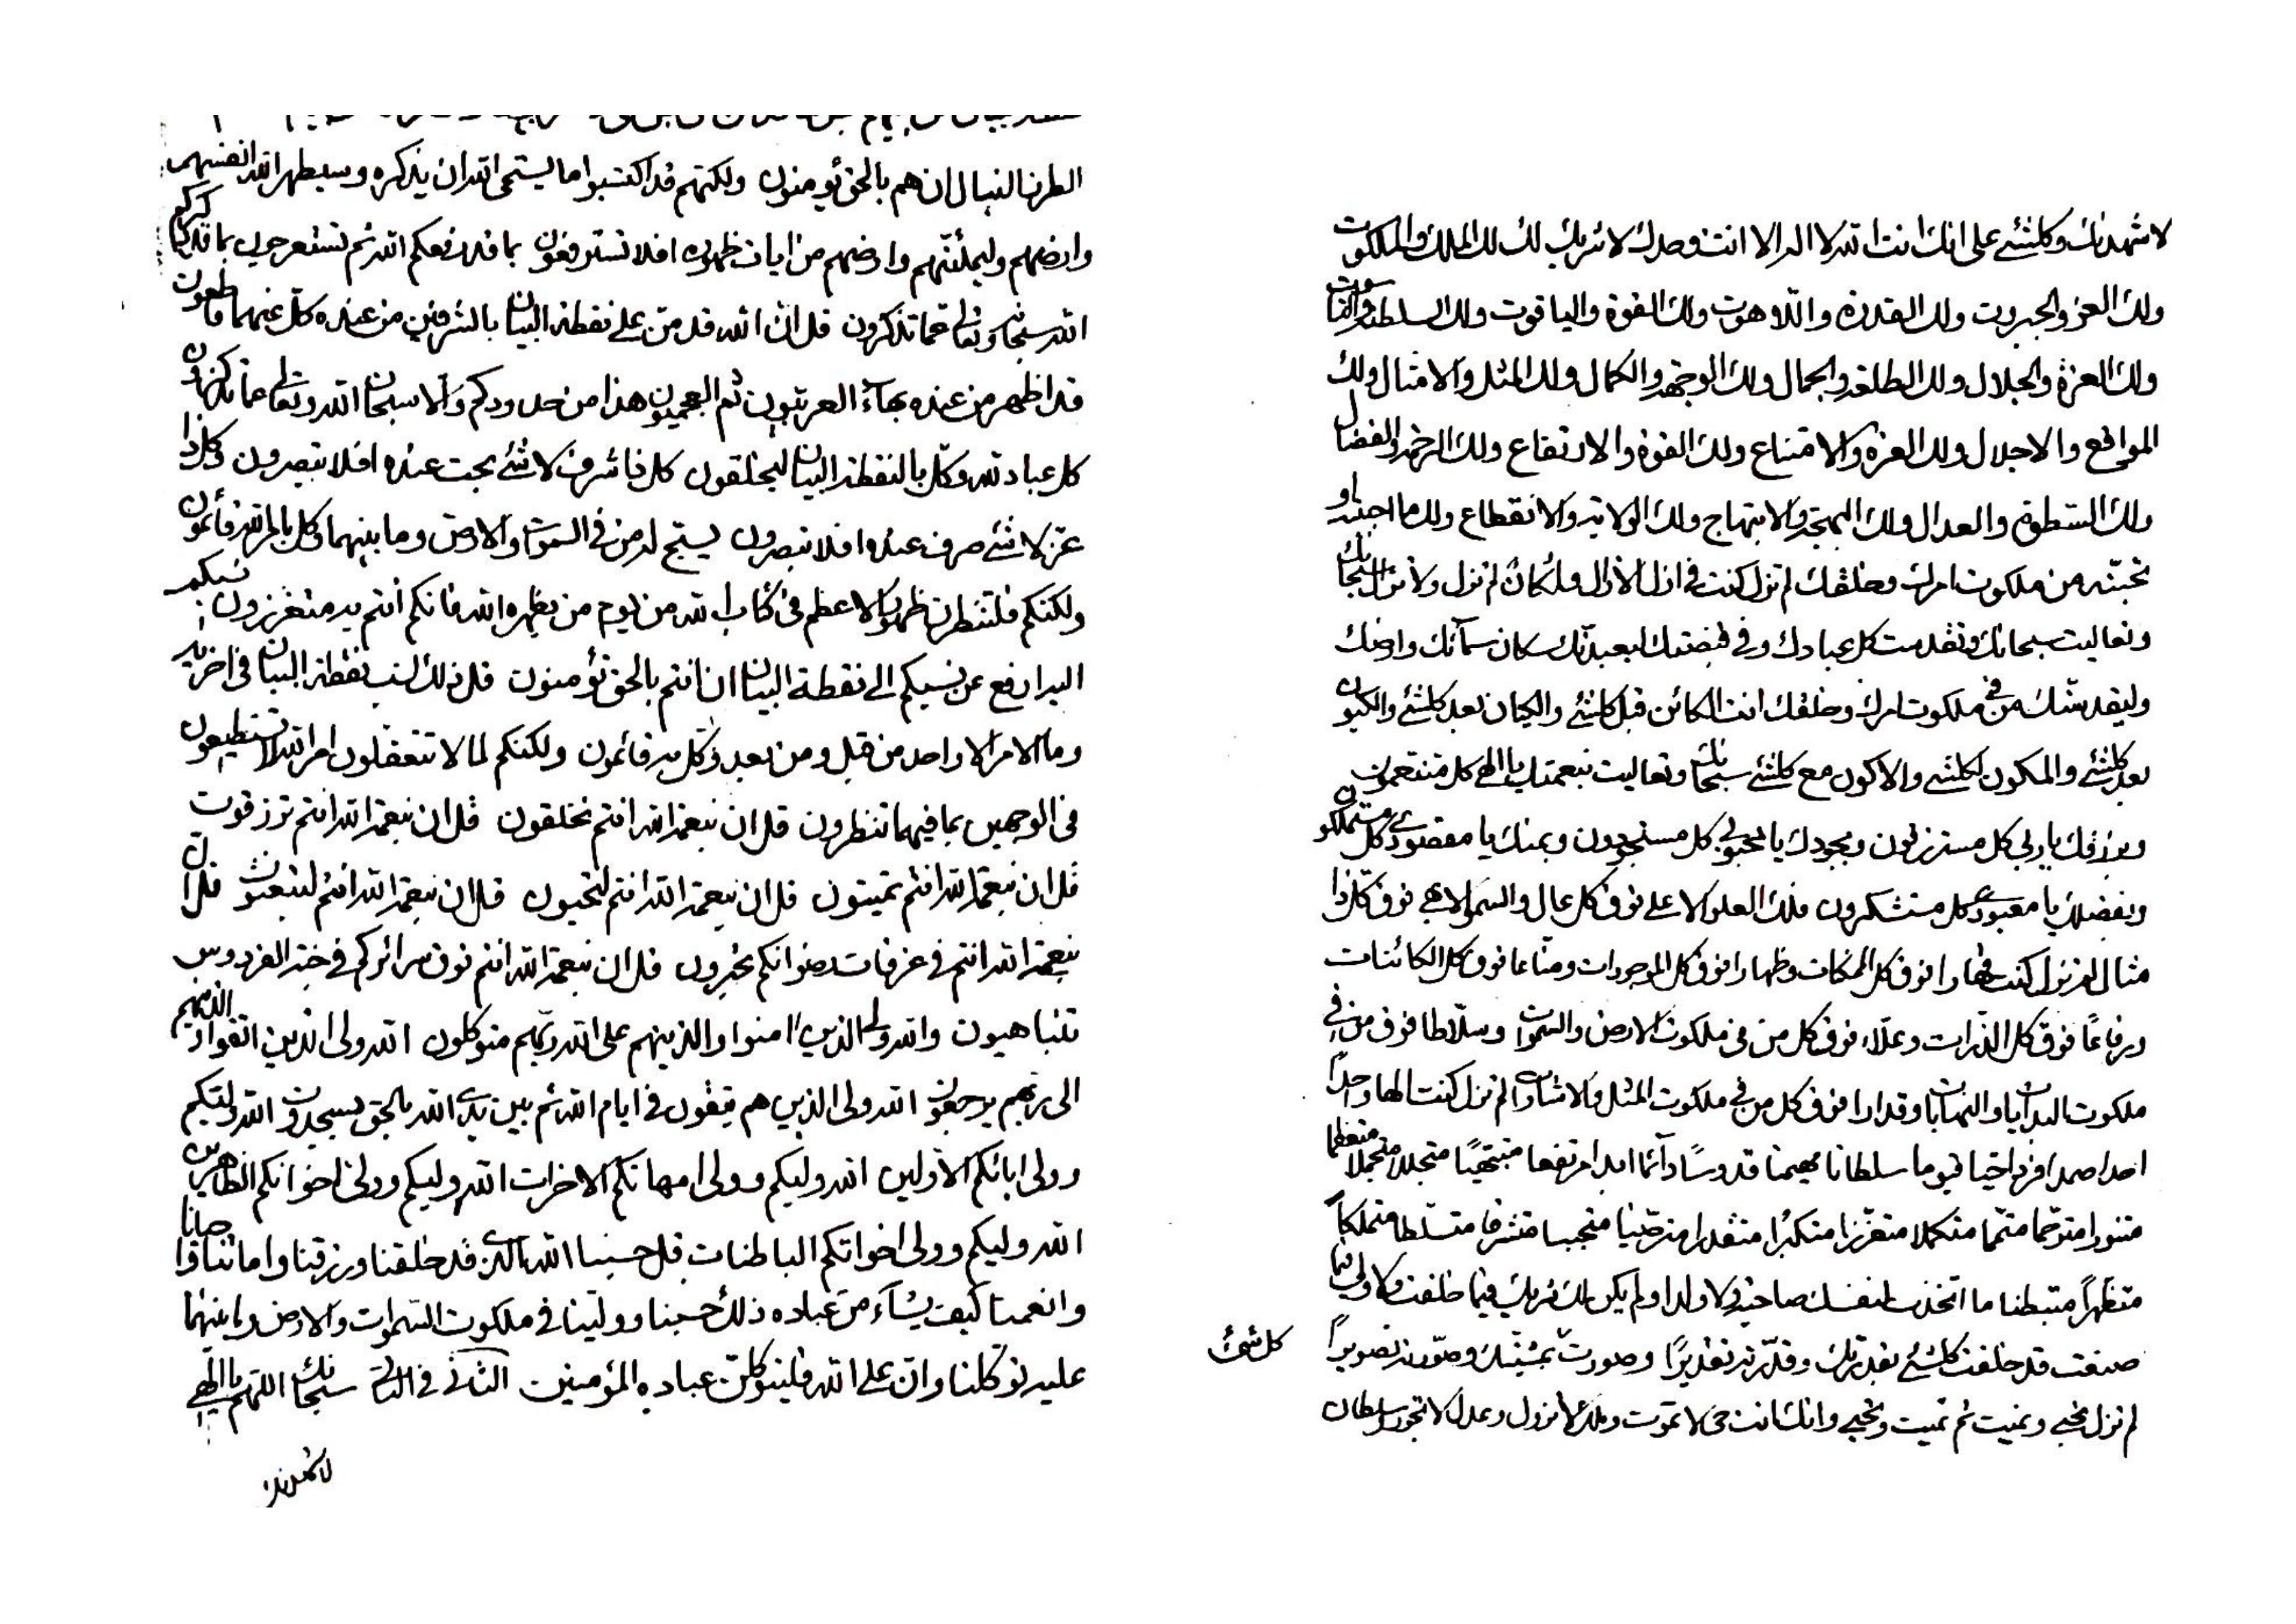 الطرف النبال ان هم بالحق يؤمنون ولكنهم قد اكتسبوا ما يستحى الله ان يذكره وسيطهر الله انفسهم
وارضهم وليملئنهم وارضهم من ايات ظهوره افلا تسترفعون بما قد رفعكم الله ثم تستعرجون بما قد ذكركم
الله سبحانه وتعالى عما تذكرون قل ان الله قد من على نقطة البيان بالشرفين من عنده كل عنهما قاطعون
قد اظهر من عنده بهاء العربيون ثم العجميون هذا من حدودكم والا سبحان الله وتعالى عما تذكرون
كل عباد لله وكل بالنقطة البيان ليخلقون كل ذا شرف لاشئ بحت عنده افلا تبصرون وكل ذا
عز لاشئ صرف عنده افلا تبصرون يسبح له من في السموات والارض وما بينهما وكل بامر الله قائمون
ولكنكم فلتنظرن ظهور الاعظم في كتاب الله من يوم من يظهره الله فانكم انتم به متعززون نسبكم
اليه ارفع عن نسبكم الى نقطة البيان ان انتم بالحق تؤمنون قل ذلك نسب نقطة البيان في اخريه
وما الامر الا واحد من قبل ومن بعد وكل به قائمون ولكنكم لما لا تتعقلون امر الله لا تستطيعون
في الوجهين بما فيهما تنظرون قل ان بنعمة الله انتم تخلقون قل ان بنعمة الله انتم ترزقون
قل ان بنعمة الله انتم تميتون قل ان بنعمة الله انتم لتحيون قل ان بنعمة الله انتم لتبعثون قل ان
بنعمة الله انتم في غرفات رضوانكم تحبرون قل ان بنعمة الله انتم فوق سرائركم في جنة الفردوس
تتباهيون والله ولى الذين امنوا والذينهم على الله ربهم متوكلون الله ولى الذين اتقوا والذينهم
الى ربهم يرجعون الله ولى الذين هم يتقون في ايام الله ثم بين يدى الله بالحق يسجدون الله وليكم
وولى ابائكم الاولين الله وليكم وولى امهاتكم الاخرات الله وليكم وولى اخوانكم الظاهرين
الله وليكم وولى اخواتكم الباطنات قل حسبنا الله الذى قد خلقنا ورزقنا واماتنا واحيانا
وانعمنا كيف يشاء من عباده ذلك حسبنا وولينا في ملكوت السموات والارض وما بينهما
عليه توكلنا وان على الله فليتوكلن عباده المؤمنين الثاني في الثاني سبحانك اللهم يا الهي
لاشهدنك
لاشهدنك وكلشئ على انك انت الله لا اله الا انت وحدك لا شريك لك لك الملك والملكوت
ولك العز والجبروت ولك القدرة واللاهوت ولك القوة والياقوت ولك السلطنة والناسوت
ولك العزة والجلال ولك الطلعة والجمال ولك الوجهة والكمال ولك المثل والامثال ولك
المواقع والاجلال ولك العزة والامتناع ولك القوة والارتفاع ولك الرحمة والفضال
ولك السطوة والعدال ولك البهجة والابتهاج ولك الولاية والانقطاع ولك ما احببته او
تحبنه من ملكوت امرك وخلقك لم تزل كنت في ازل الازال ولم تزل ولا تزال سبحانك
وتعاليت سبحانك وتقدست كل عبادك وفي قبضتك ليعبدنك سكان سمائك وارضك
وليقدسنك من في ملكوت امرك وخلقك انت الكائن قبل كلشئ والكيان بعد كلشئ والكينون
بعد كلشئ والمكون لكلشئ والاكون مع كلشئ سبحانك وتعاليت بنعمتك يا الهي كل متنعمون
وبرزقك يا ربي كل مسترزقون وبجودك يا محبوبي كل مستجودون وبمنك يا مقصودي كل متملكون
وبفضلك يا معبودي كل مستشكرون فلك العلو الاعلى فوق كل عال والسمو الابهى فوق كل ذا
مثال لم تزل كنت قهارا فوق كل الممكنات وظهارا فوق كل الموجودات ومناعا فوق كل الكائنات
ورفاعا فوق كل الذرات وعلاء فوق كل من في ملكوت الارض والسموات وسلاطا فوق من في
ملكوت البدايات والنهايات وقدارا فوق كل من في ملكوت المثل والاشارات لم تزل كنت الها واحدا
احدا صمدا فردا حيا قيوما سلطانا مهيمنا قدوسا دائما ابدا مرتفعا مبتهيا متجللا متجملا متعظما
متنورا مترحما متتمما متكملا متعززا متكبرا متقدرا مترضيا متحببا متشرفا متسلطا متملكا
متظهرا متبطنا ما اتخذت لنفسك صاحبة ولا ولدا ولم يكن لك شريك فيما خلقت ولا ولى فيما
صنعت قد خلقت كلشئ بقدرتك وقدرته تقديرا وصورت بمشيتك كل شئ وصورته تصويرا
لم تزل تحيي وتميت ثم تميت وتحيي وانك انت حي لا تموت وملك لا تزول وعدل لا تجور وسلطان